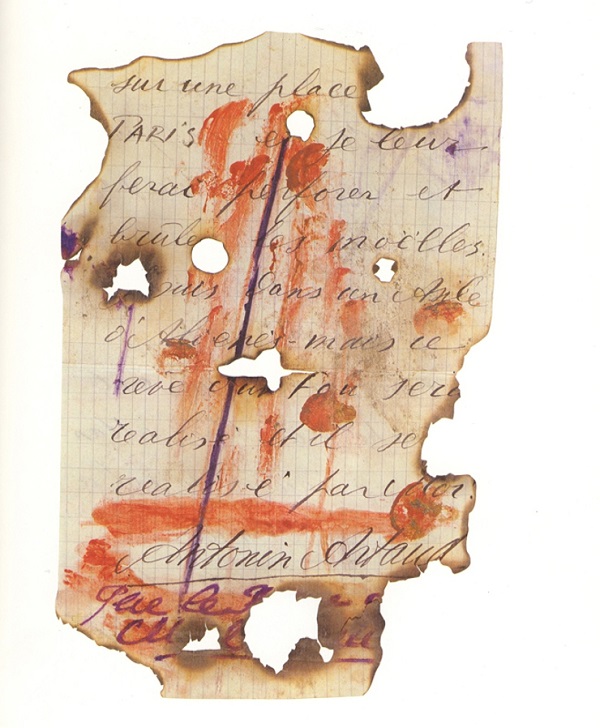 sur une place
PARIS et je leur
ferai perforer et
brûle les moëlles.
suis dans un Asile
d'Aliénés - mais ce
rêve d'un Fou sera
réalisé et il se
réalisé par moi.
Antonin Artaud
Que le